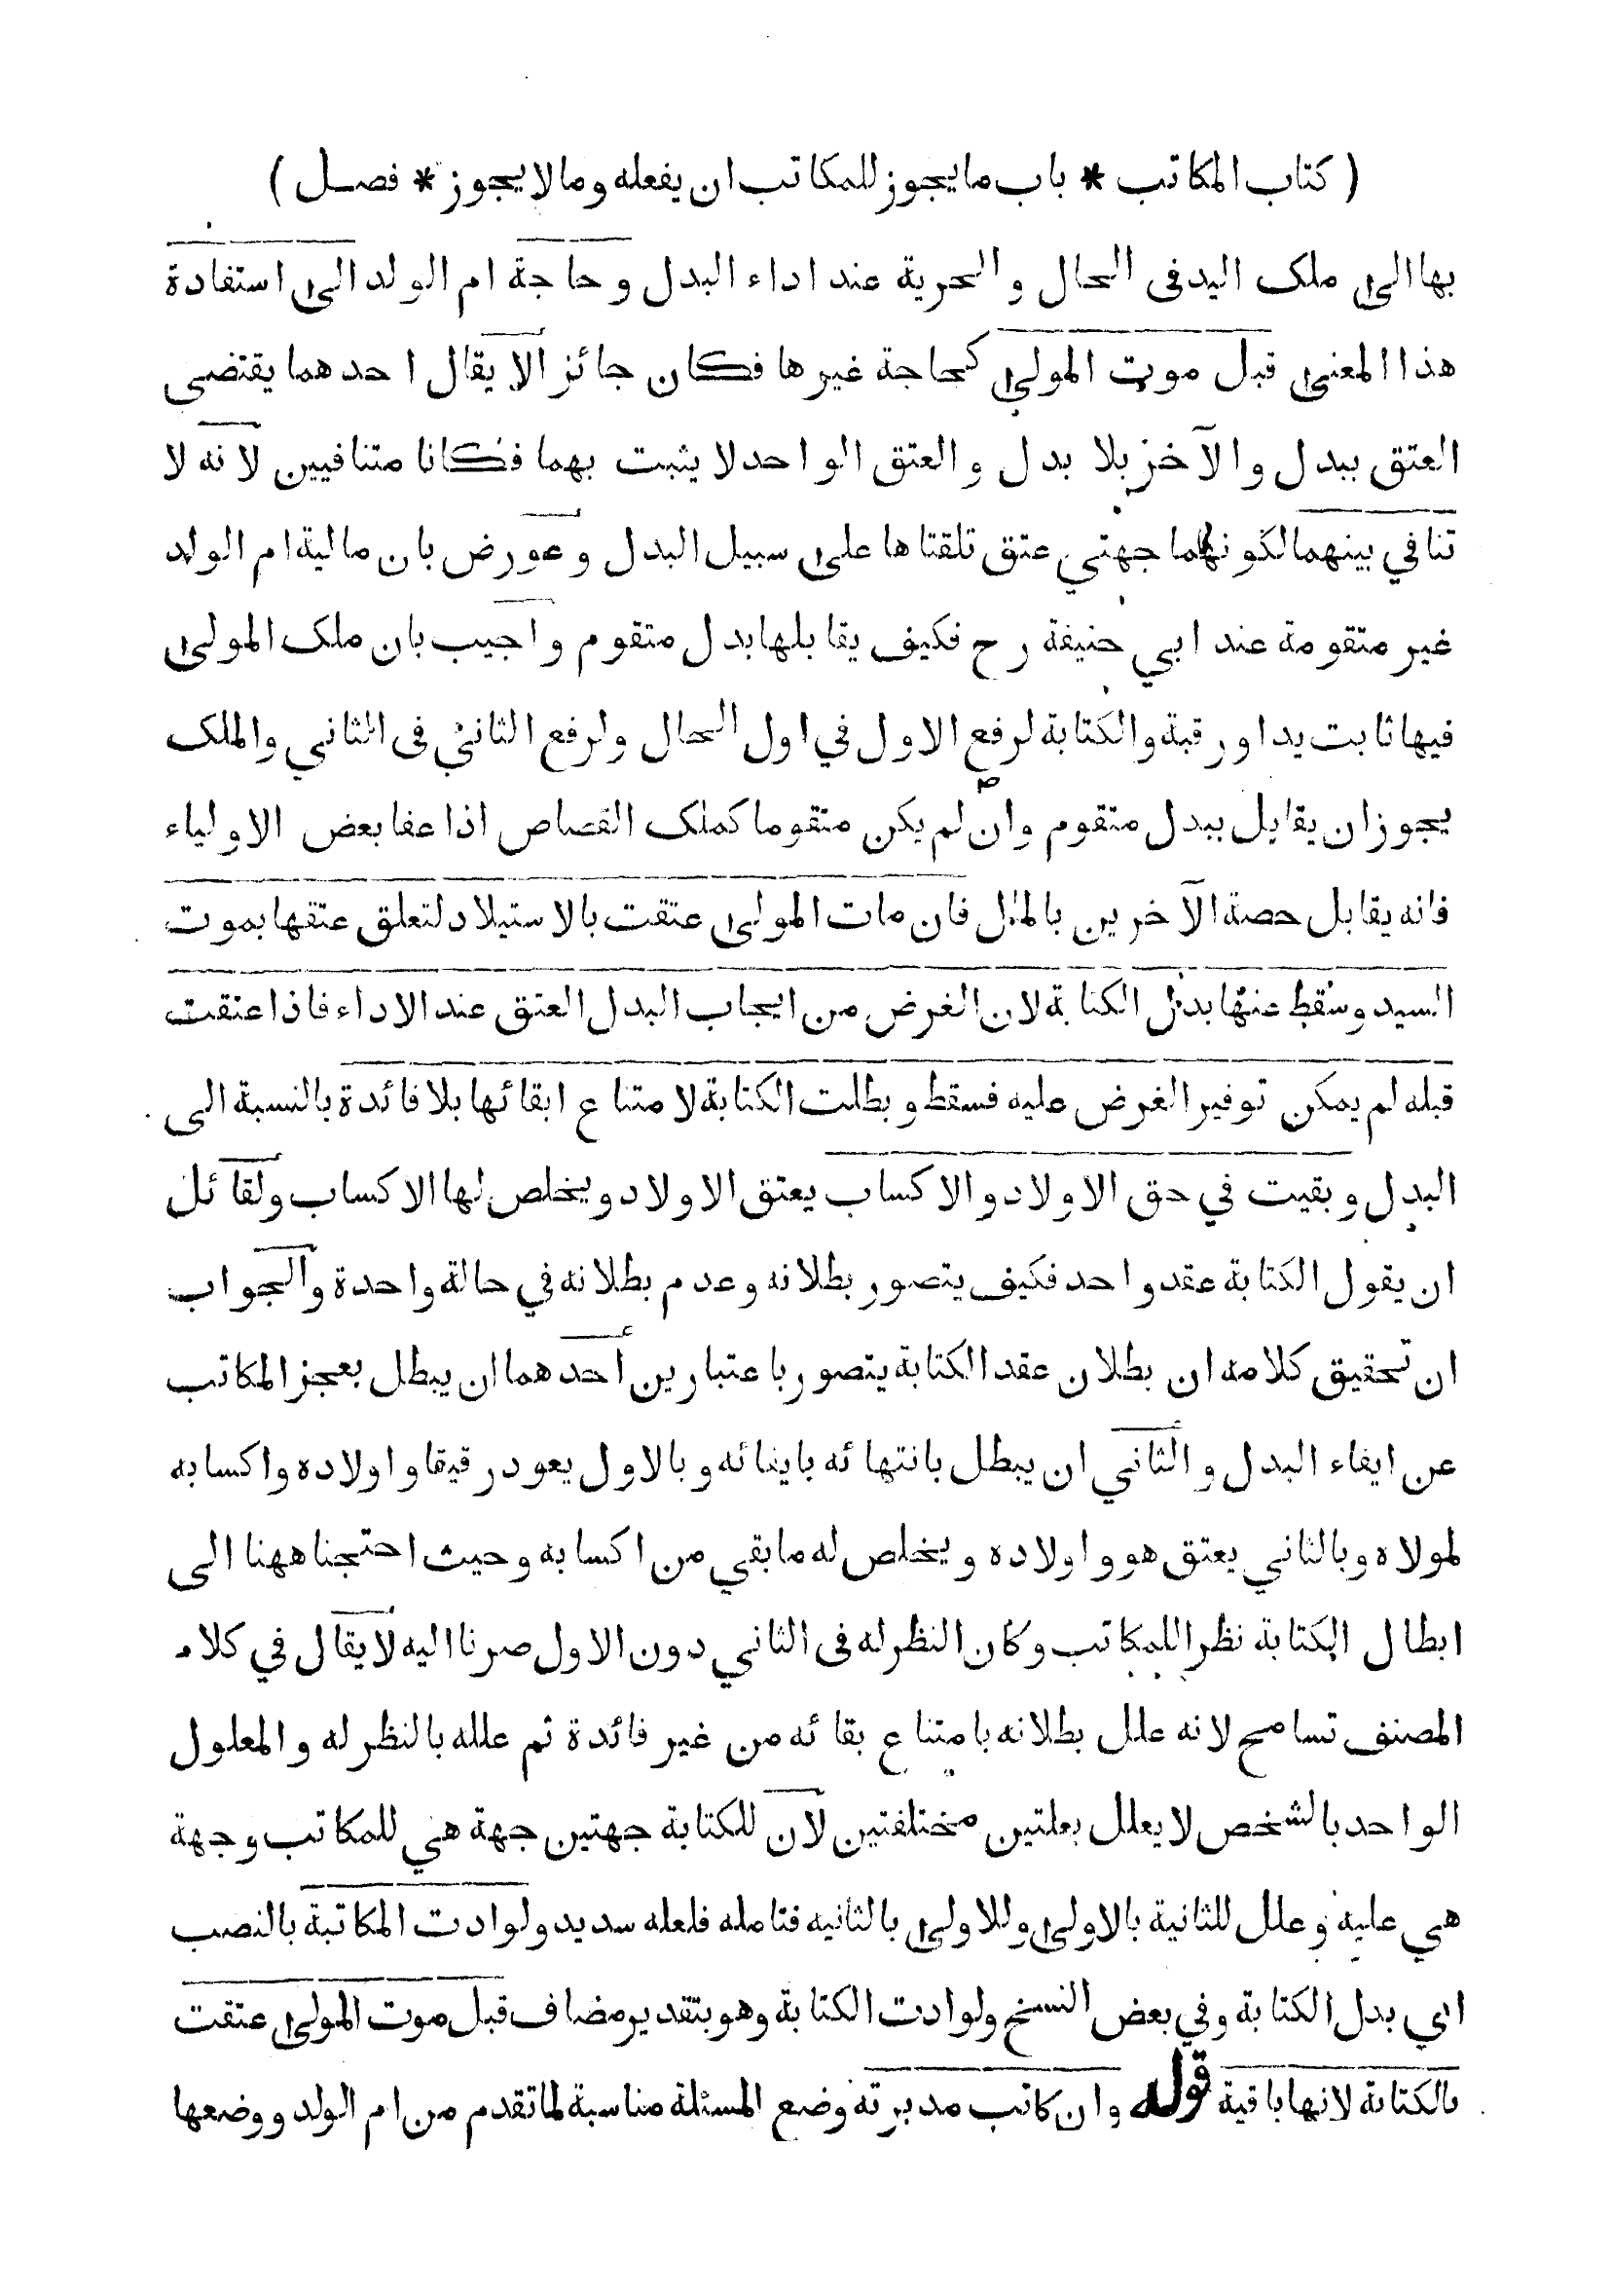 ( كتاب المكاتب * باب ما يجوز للمكاتب ان يفعله وما لا يجوز * فصل )
بها الى ملك اليد فى الحال والحرية عند اداء البدل وحاجة ام الولد الى استفادة
هذا المعنى قبل موت المولى كحاجة غيرها فكان جائز الا يقال احدهما يقتضى
العتق ببدل والآخر بلا بدل والعتق الواحد لا يثبت بهما فكانا متنافيين لانه لا
تنافي بينهما لكونهما جهتي عتق تلقتاها على سبيل البدل وعورض بان مالية ام الولد
غير متقومة عند ابي حنيفة رح فكيف يقابلها بدل متقوم واجيب بان ملك المولى
فيها ثابت يدا ورقبة والكتابة لرفع الاول في اول الحال ولرفع الثاني فى الثاني والملك
يجوز ان يقابل ببدل متقوم وان لم يكن متقوما كملك القصاص اذا عفا بعض الاولياء
فانه يقابل حصة الآخرين بالمال فان مات المولى عتقت بالاستيلاد لتعلق عتقها بموت
السيد وسقط عنها بدل الكتابة لان الغرض من ايجاب البدل العتق عند الاداء فاذا عتقت
قبله لم يمكن توفير الغرض عليه فسقط وبطلت الكتابة لامتناع ابقائها بلا فائدة بالنسبة الى
البدل وبقيت في حق الاولاد والاكساب يعتق الاولاد ويخلص لها الاكساب ولقائل
ان يقول الكتابة عقد واحد فكيف يتصور بطلانه وعدم بطلانه في حالة واحدة والجواب
ان تحقيق كلامه ان بطلان عقد الكتابة يتصور باعتبارين أحدهما ان يبطل بعجز المكاتب
عن ايفاء البدل والثاني ان يبطل بانتهائه بايفائه وبالاول يعود رقيقا واولاده واكسابه
لمولاه وبالثاني يعتق هو واولاده ويخلص له ما بقي من اكسابه وحيث احتجنا ههنا الى
ابطال الكتابة نظرا للمكاتب وكان النظر له فى الثاني دون الاول صرنا اليه لا يقال في كلام
المصنف تسامح لانه علل بطلانه بامتناع بقائه من غير فائدة ثم علله بالنظر له والمعلول
الواحد بالشخص لا يعلل بعلتين مختلفتين لان للكتابة جهتين جهة هي للمكاتب وجهة
هي عليه وعلل للثانية بالاولى وللاولى بالثانيه فتامله فلعله سديد ولو ادت المكاتبة بالنصب
اي بدل الكتابة وفي بعض النسخ ولو ادت الكتابة وهو بتقدير مضاف قبل موت المولى عتقت
بالكتابة لانها باقية قوله وان كاتب مدبرته وضع المسئلة مناسبة لما تقدم من ام الولد ووضعها